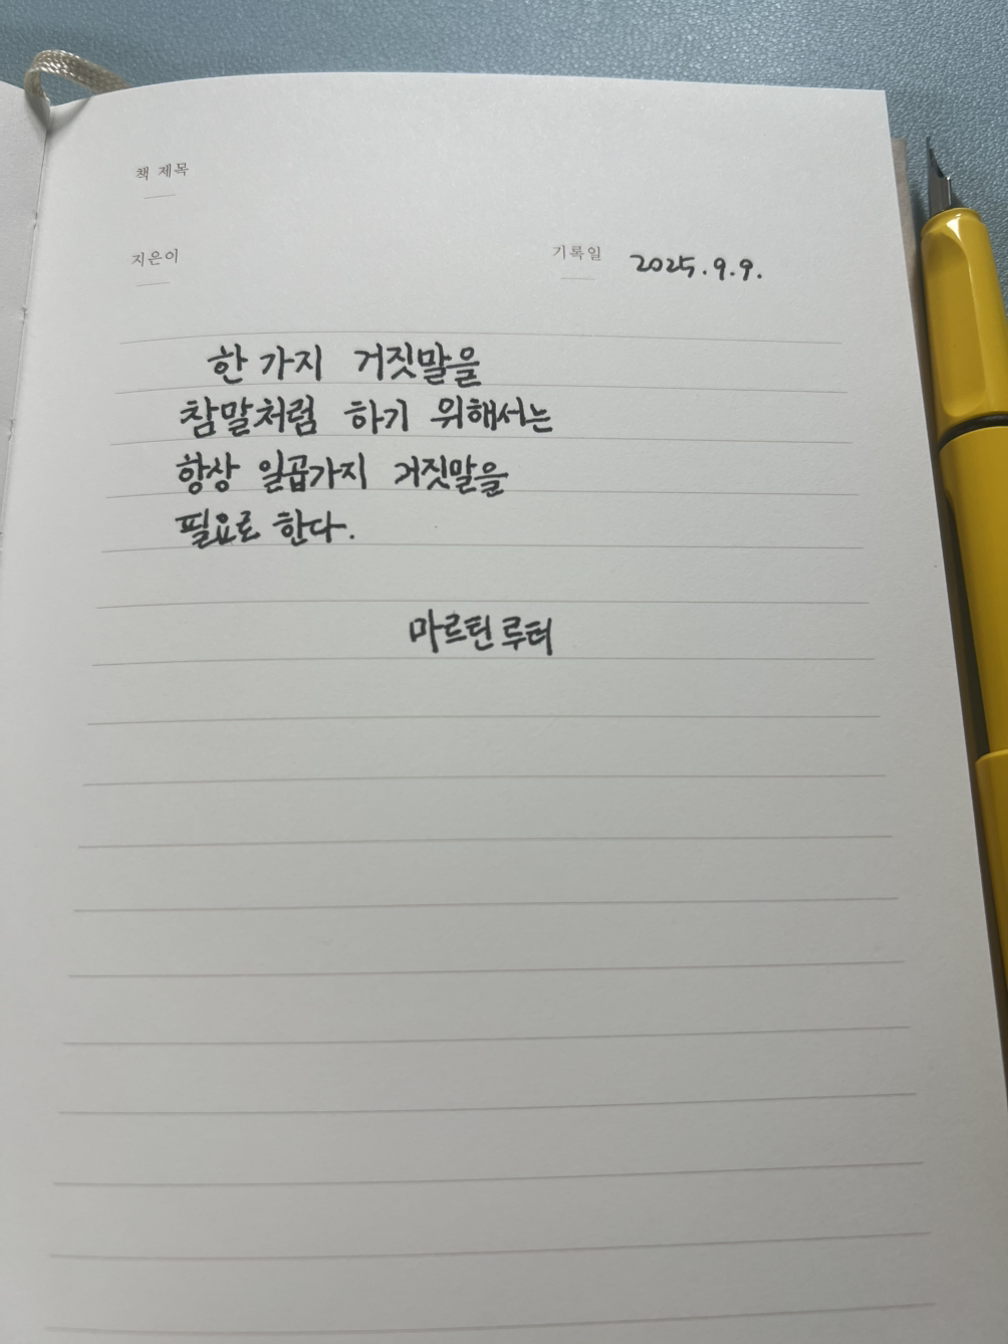 책 제목
지은이
기록일 2025.9.9.
한 가지 거짓말을
참말처럼 하기 위해서는
항상 일곱가지 거짓말을
필요로 한다.
마르틴 루터